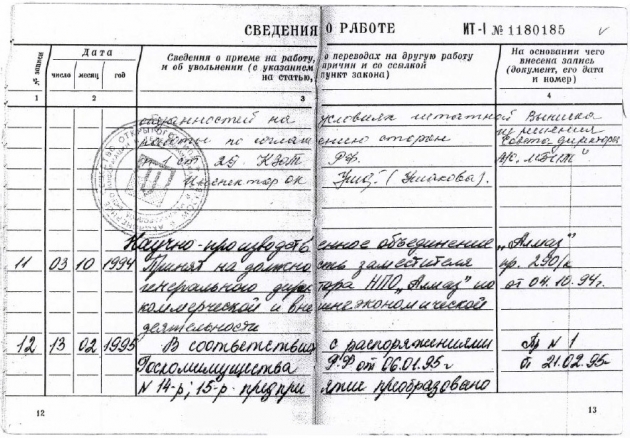 СВЕДЕНИЯ О РАБОТЕ ИТ-I № 1180185
№ записи
Дата
Сведения о приеме на работу, о переводах на другую работу
и об увольнении (с указанием причин и со ссылкой
на статью, пункт закона)
На основании чего
внесена запись
(документ, его дата
и номер)
число месяц год
1 2 3 4
на условиях штатной Выписка
работы по соглашению сторон из решения
ст 29 КЗоТ РФ. директоров
Инспектор ОК (Ушакова).
Научно-производственное объединение „Алмаз"
11 03 10 1994 Принят на должность заместителя пр. 290/к
генерального директора НПО „Алмаз" по от 04.10.94г.
коммерческой и внешнеэкономической
деятельности
12 13 02 1995 В соответствии с распоряжениями Пр N 1
Госкомимущества РФ от 06.01.95г от 21.02.95г
N 14-р; 15-р предприятие преобразовано
12 13